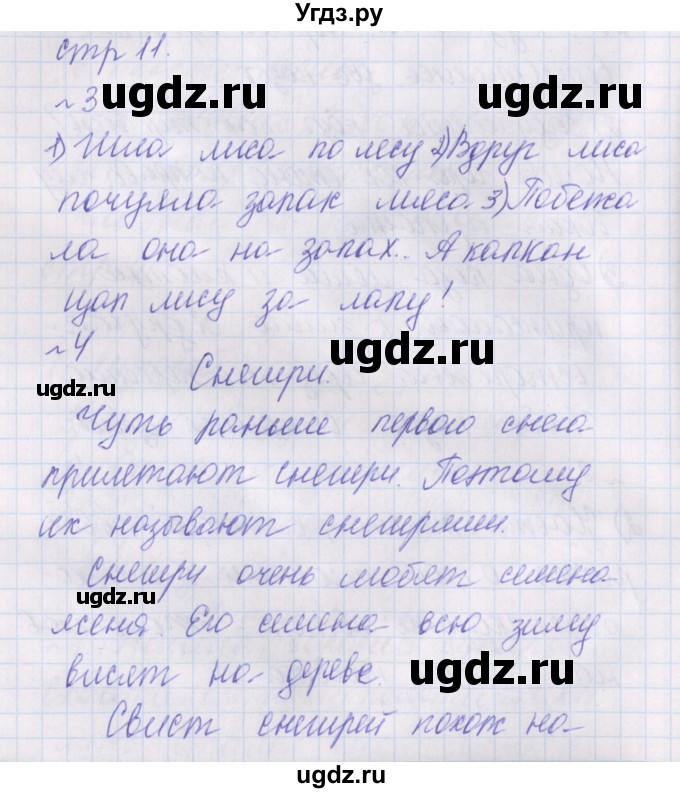 Угдз.ру
стр 11.
~ 3
ugdz.ru ugdz.ru
1) Шла лиса по лесу 2) Вдруг лиса
почуяла запах мяса. 3) Побежа
ла она на запах. А капкан
цап лису за лапу!
~ 4
ugdz.ru
ugdz.ru
Снегири.
Чуть раньше первого снега
прилетают снегири. Поэтому
их называют снегирями.
Снегири очень любят семена
ugdz.ru
ясеня. Его семена всю зиму
висят на дереве.
ugdz.ru
Свист снегирей похож на
ugdz.ru